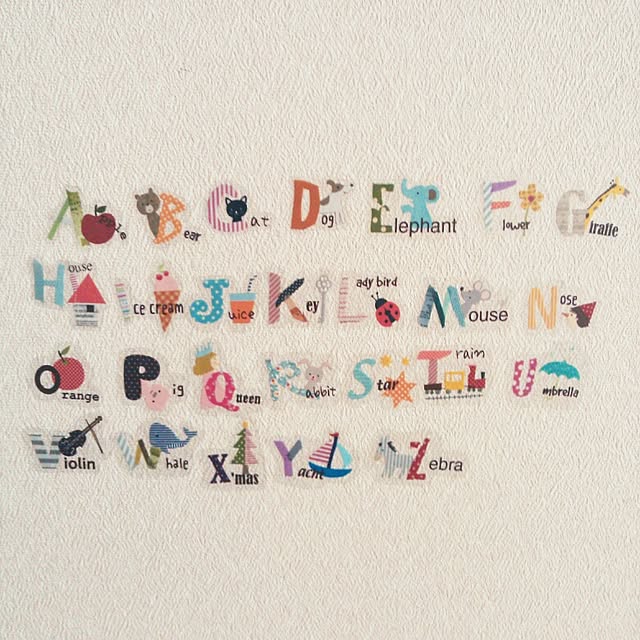 Apple Bear Cat Dog Elephant Flower Giraffe
House Ice cream Juice Key Lady bird Mouse Nose
Orange Pig Queen Rabbit Star Train Umbrella
Violin Whale X'mas Yacht Zebra